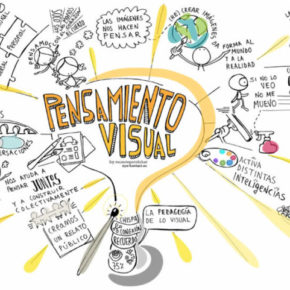 PENSAMOS
LAS IMÁGENES
NOS HACEN
PENSAR
CREAR IMÁGENES
DA
FORMA AL
MUNDO
Y A LA
REALIDAD
PENSAMIENTO
VISUAL
SI NO LO
VEO
NO ME
MUEVO
NOS AYUDA A
PENSAR JUNTOS
Y A CONSTRUIR
COLECTIVAMENTE
ACTIVA
DISTINTAS
INTELIGENCIAS
CREAMOS
UN RELATO
PÚBLICO
LA PEDAGOGÍA
DE LO VISUAL
CHISPA
CONEXIÓN
RECUERDO
35%